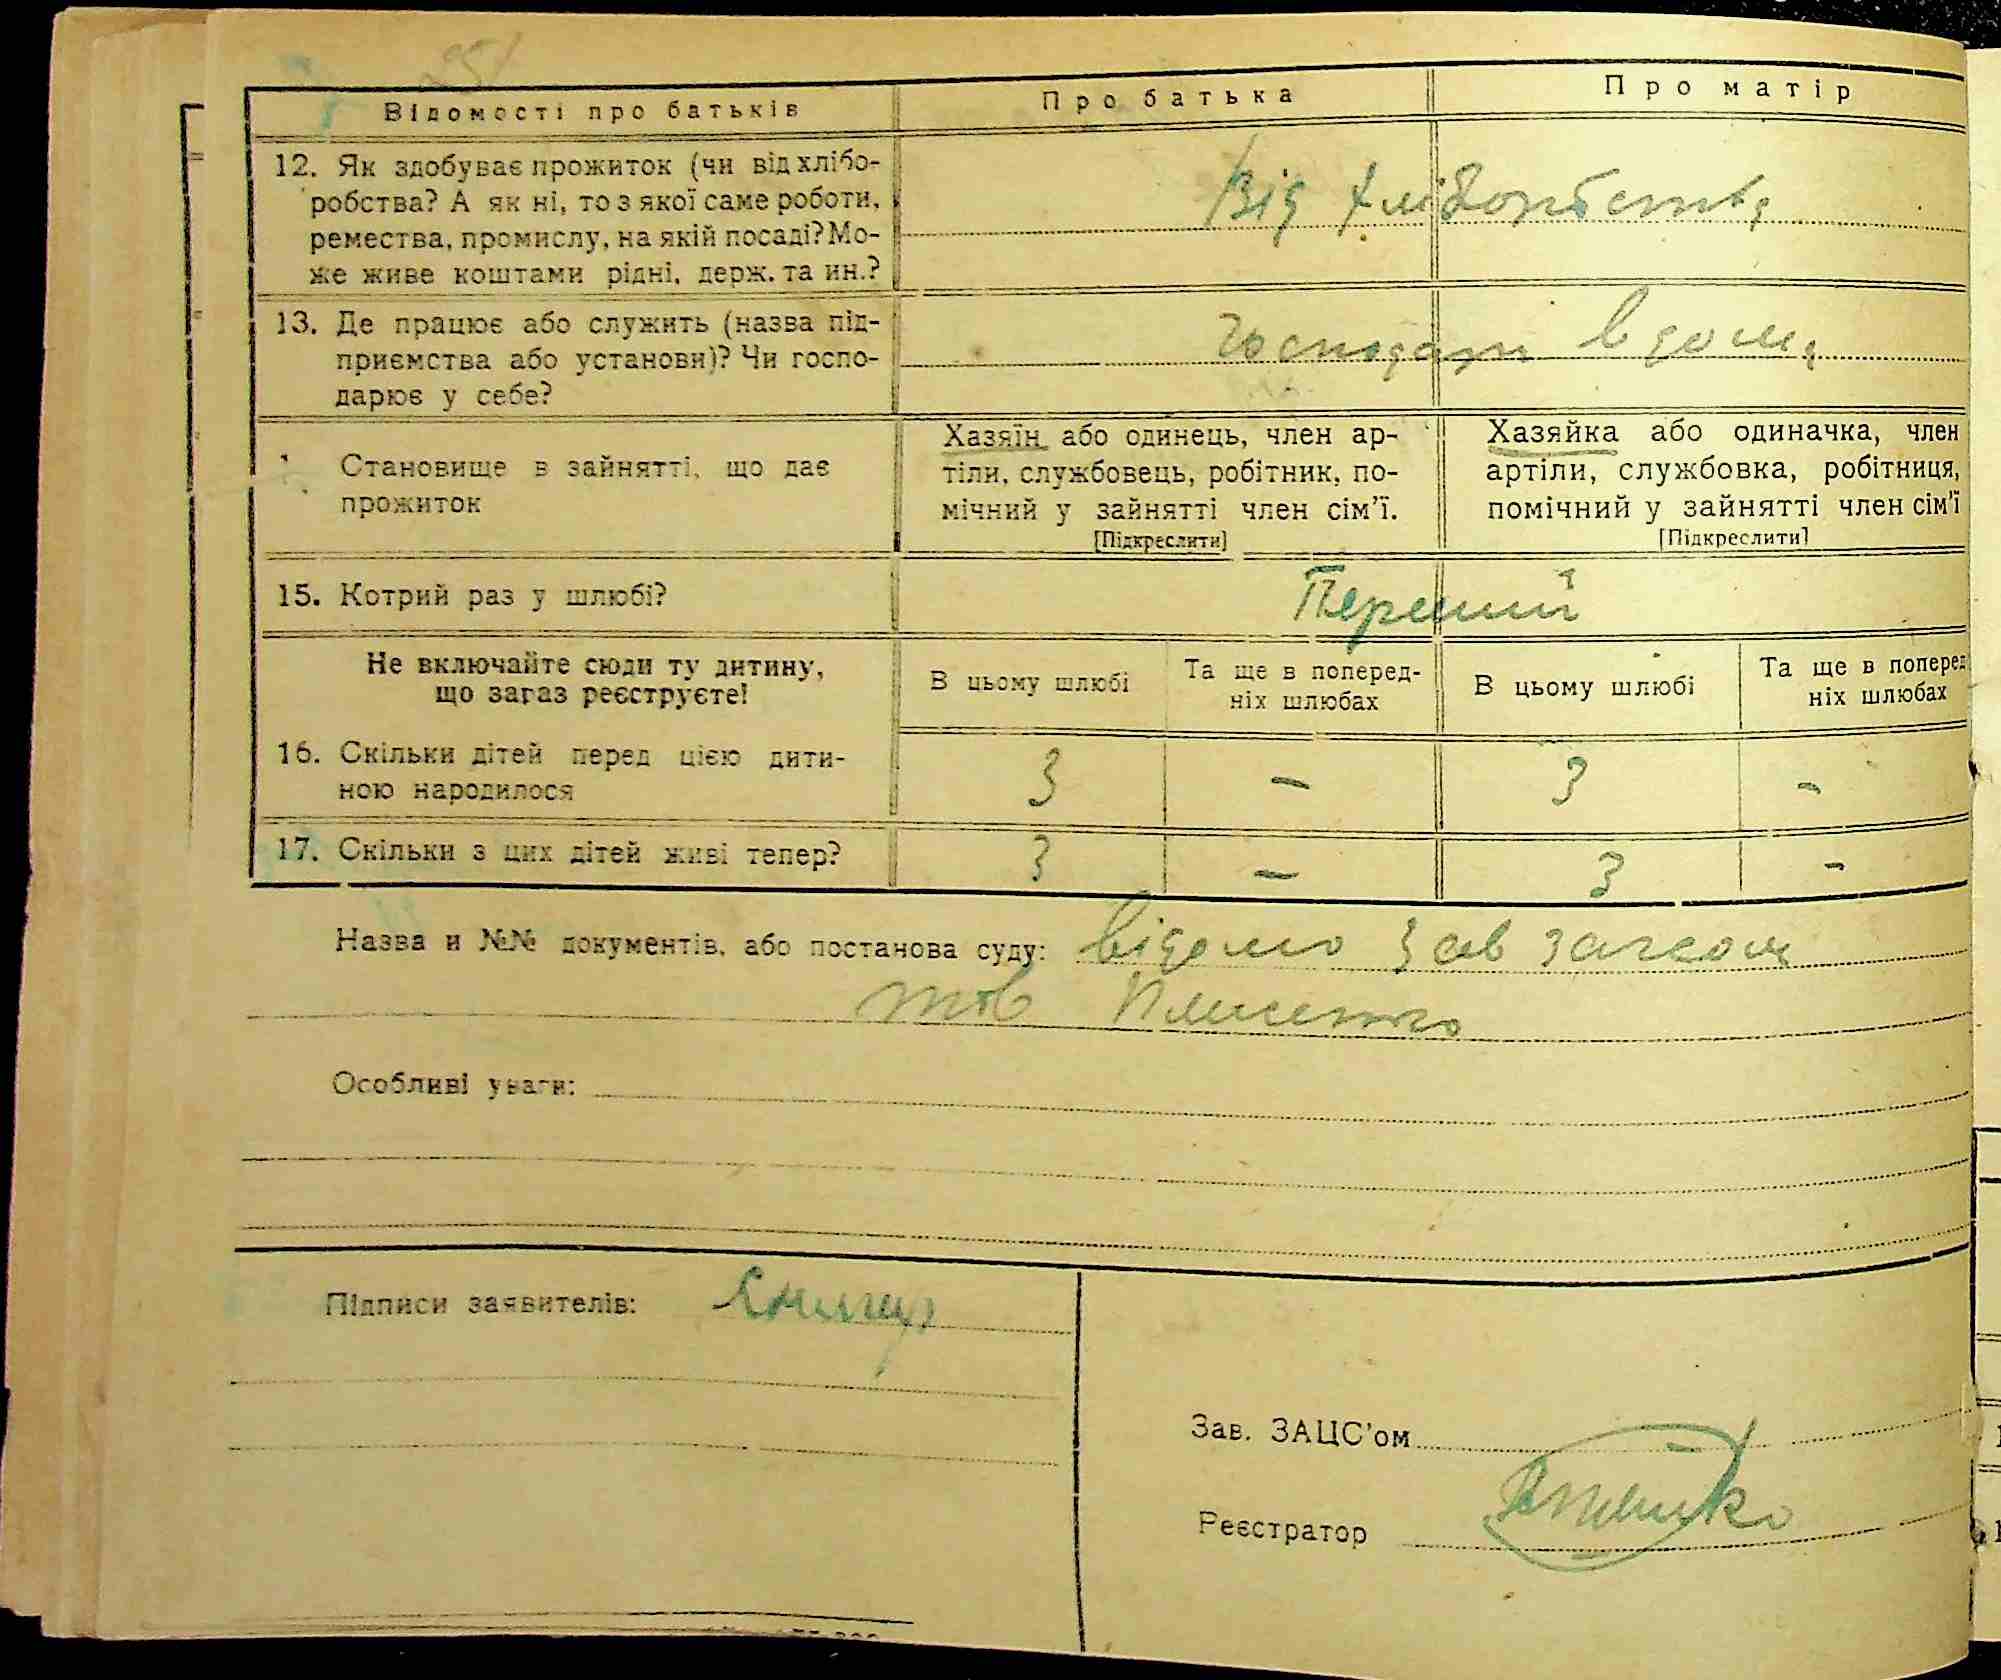 251
Відомості про батьків
Про батька
Про матір
12. Як здобуває прожиток (чи від хлібо-
робства? А як ні, то з якої саме роботи,
ремества, промислу, на якій посаді? Мо-
же живе коштами рідні, держ. та ин.?
Від хліборобства
13. Де працює або служить (назва під-
приємства або установи)? Чи госпо-
дарює у себе?
господарі в дома
Становище в зайнятті, що дає
прожиток
Хазяїн або одинець, член ар-
тіли, службовець, робітник, по-
мічний у зайнятті член сім'ї.
[Підкреслити]
Хазяйка або одиначка, член
артіли, службовка, робітниця,
помічний у зайнятті член сім'ї
[Підкреслити]
15. Котрий раз у шлюбі?
Перший
Не включайте сюди ту дитину,
що зараз реєструєте!
В цьому шлюбі
Та ще в поперед-
ніх шлюбах
В цьому шлюбі
Та ще в поперед
ніх шлюбах
16. Скільки дітей перед цією дити-
ною народилося
3 - 3 -
17. Скільки з цих дітей живі тепер?
3 - 3 -
Назва и №№ документів, або постанова суду: відомо Зав загсом
тов
Особливі уваги:
Підписи заявителів:
Зав. ЗАЦС'ом
Реєстратор